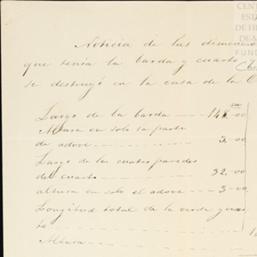 CEN
ES
DE H
DE M
FUND
Noticia de las dimen
que tenia la barda y cuarto
se destruyó en la casa de la C
Largo de la barda 14
Altura en solo la parte
de adove 3.00
Largo de las cuatro paredes
del cuarto 32.00
altura en solo el adove 3.00
Longitud total de la
Altura